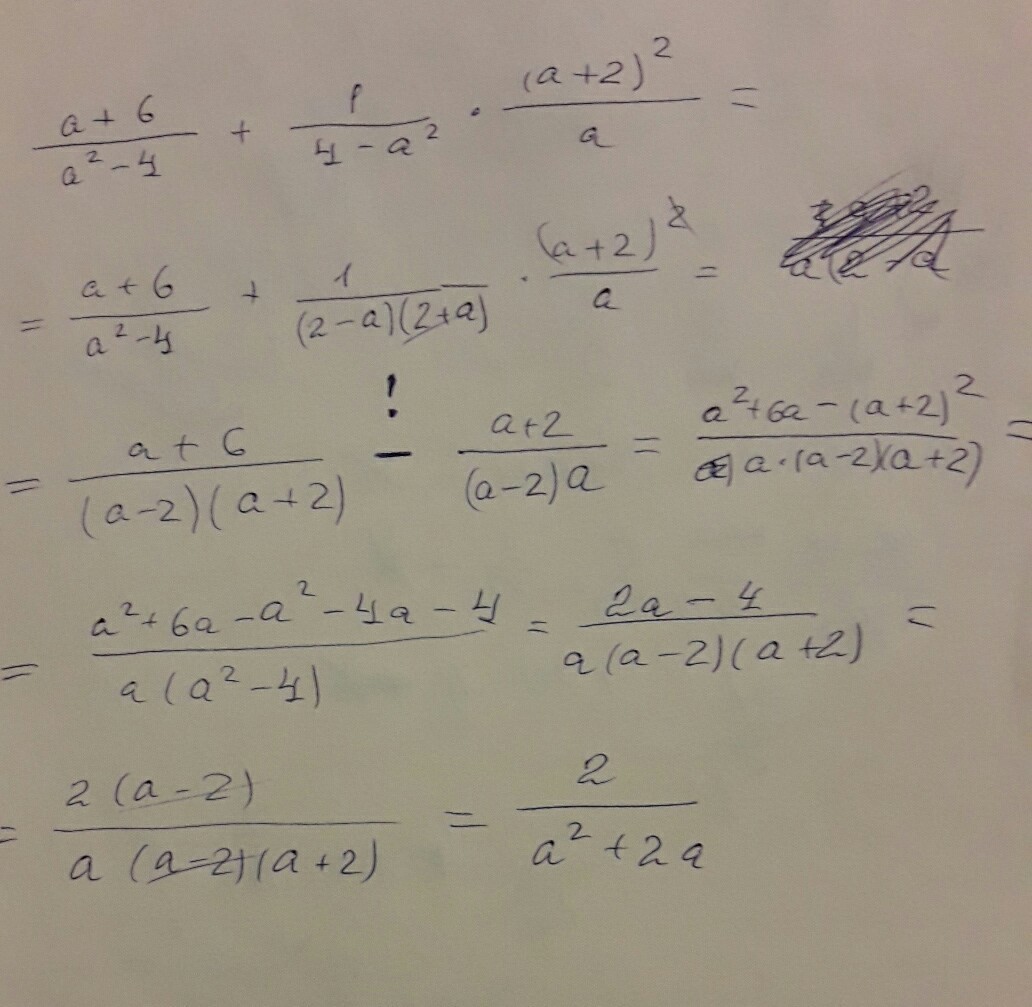 (a + 6)/(a² - 4) + 1/(4 - a²) · (a + 2)²/a =
= (a + 6)/(a² - 4) + 1/((2 - a)(2 + a)) · (a + 2)²/a =
!
= (a + 6)/((a - 2)(a + 2)) - (a + 2)/((a - 2)a) = (a² + 6a - (a + 2)²)/(a · (a - 2)(a + 2)) =
= (a² + 6a - a² - 4a - 4)/(a(a² - 4)) = (2a - 4)/(a(a - 2)(a + 2)) =
= (2(a - 2))/(a(a - 2)(a + 2)) = 2/(a² + 2a)